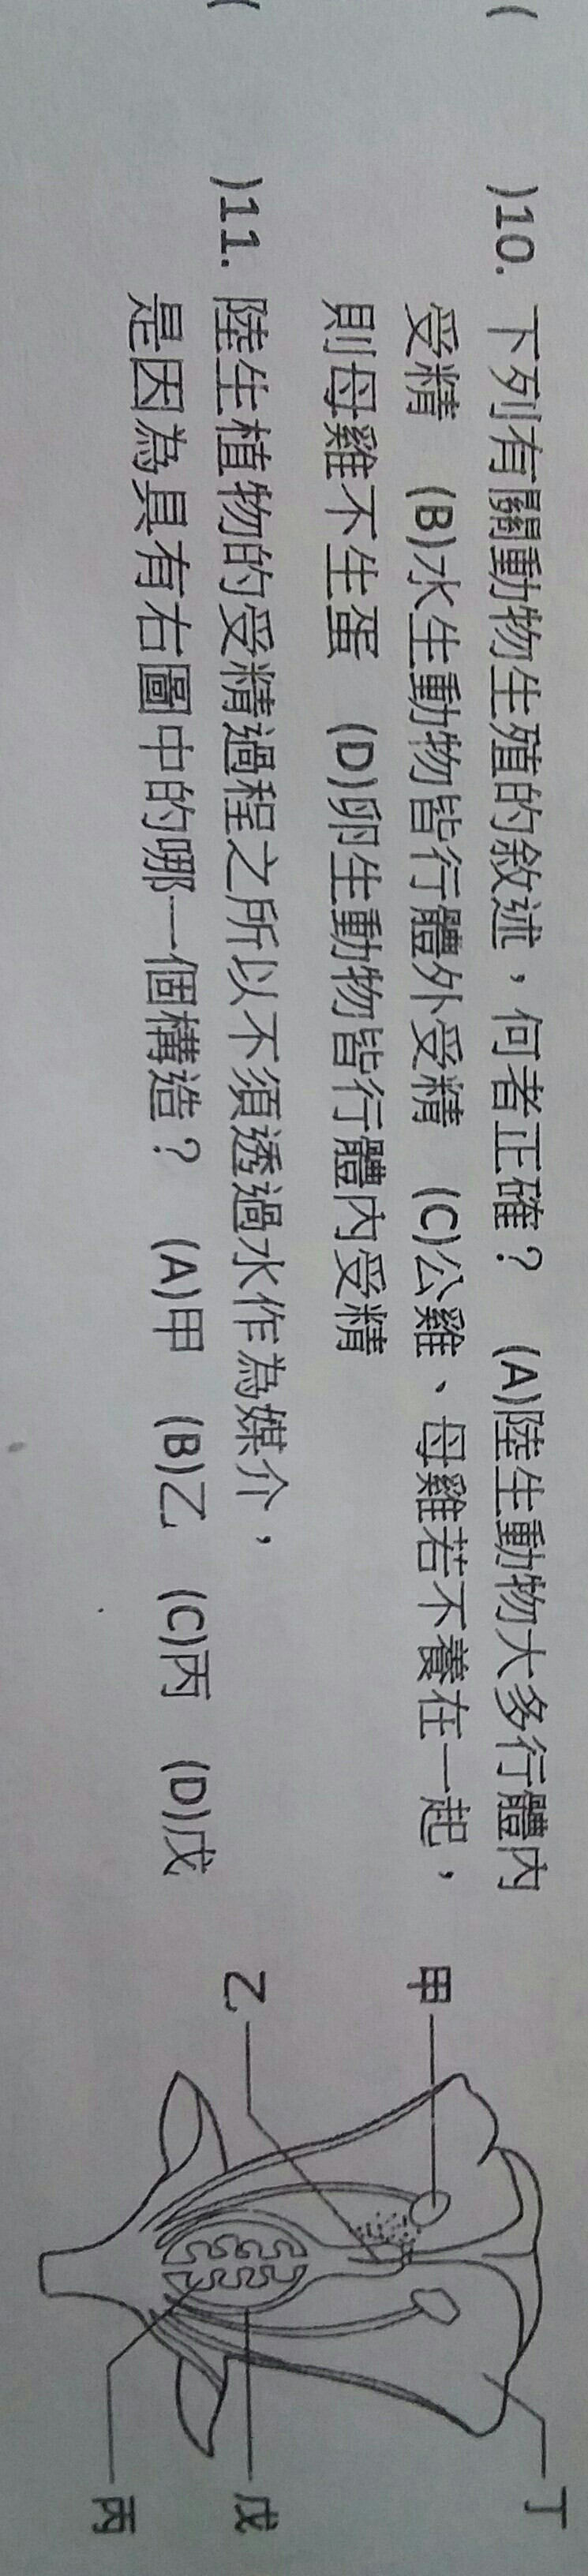 (　　)10. 下列有關動物生殖的敘述，何者正確？ (A)陸生動物大多行體內
受精 (B)水生動物皆行體外受精 (C)公雞、母雞若不養在一起，
則母雞不生蛋 (D)卵生動物皆行體內受精
(　　)11. 陸生植物的受精過程之所以不須透過水作為媒介，
是因為具有右圖中的哪一個構造？ (A)甲 (B)乙 (C)丙 (D)戊
丁
甲
乙
戊
丙